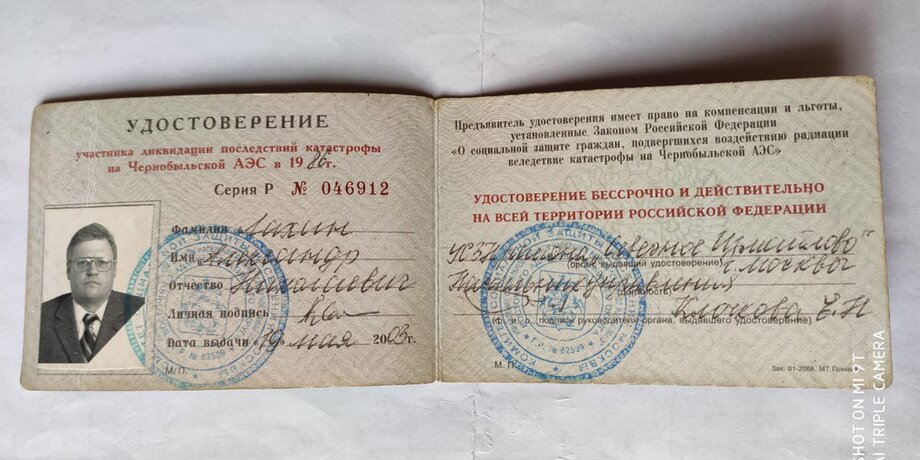 УДОСТОВЕРЕНИЕ
участника ликвидации последствий катастрофы
на Чернобыльской АЭС в 1986г.
Серия Р № 046912
Фамилия Лихин
Имя Александр
Отчество Николаевич
Личная подпись
Дата выдачи "19" мая 2003г.
М. П.
Предъявитель удостоверения имеет право на компенсации и льготы,
установленные Законом Российской Федерации
«О социальной защите граждан, подвергшихся воздействию радиации
вследствие катастрофы на Чернобыльской АЭС»
УДОСТОВЕРЕНИЕ БЕССРОЧНО И ДЕЙСТВИТЕЛЬНО
НА ВСЕЙ ТЕРРИТОРИИ РОССИЙСКОЙ ФЕДЕРАЦИИ
района "Северное Измайлово"
(орган, выдавший удостоверение)
г. Москвы
Начальник управления
(должность)
Клочкова Е.Н
(ф., и., о., подпись руководителя органа, выдавшего удостоверение)
М. П.
Зак. 01-2066. МТ Гознака
SHOT ON MI 9T
AI TRIPLE CAMERA